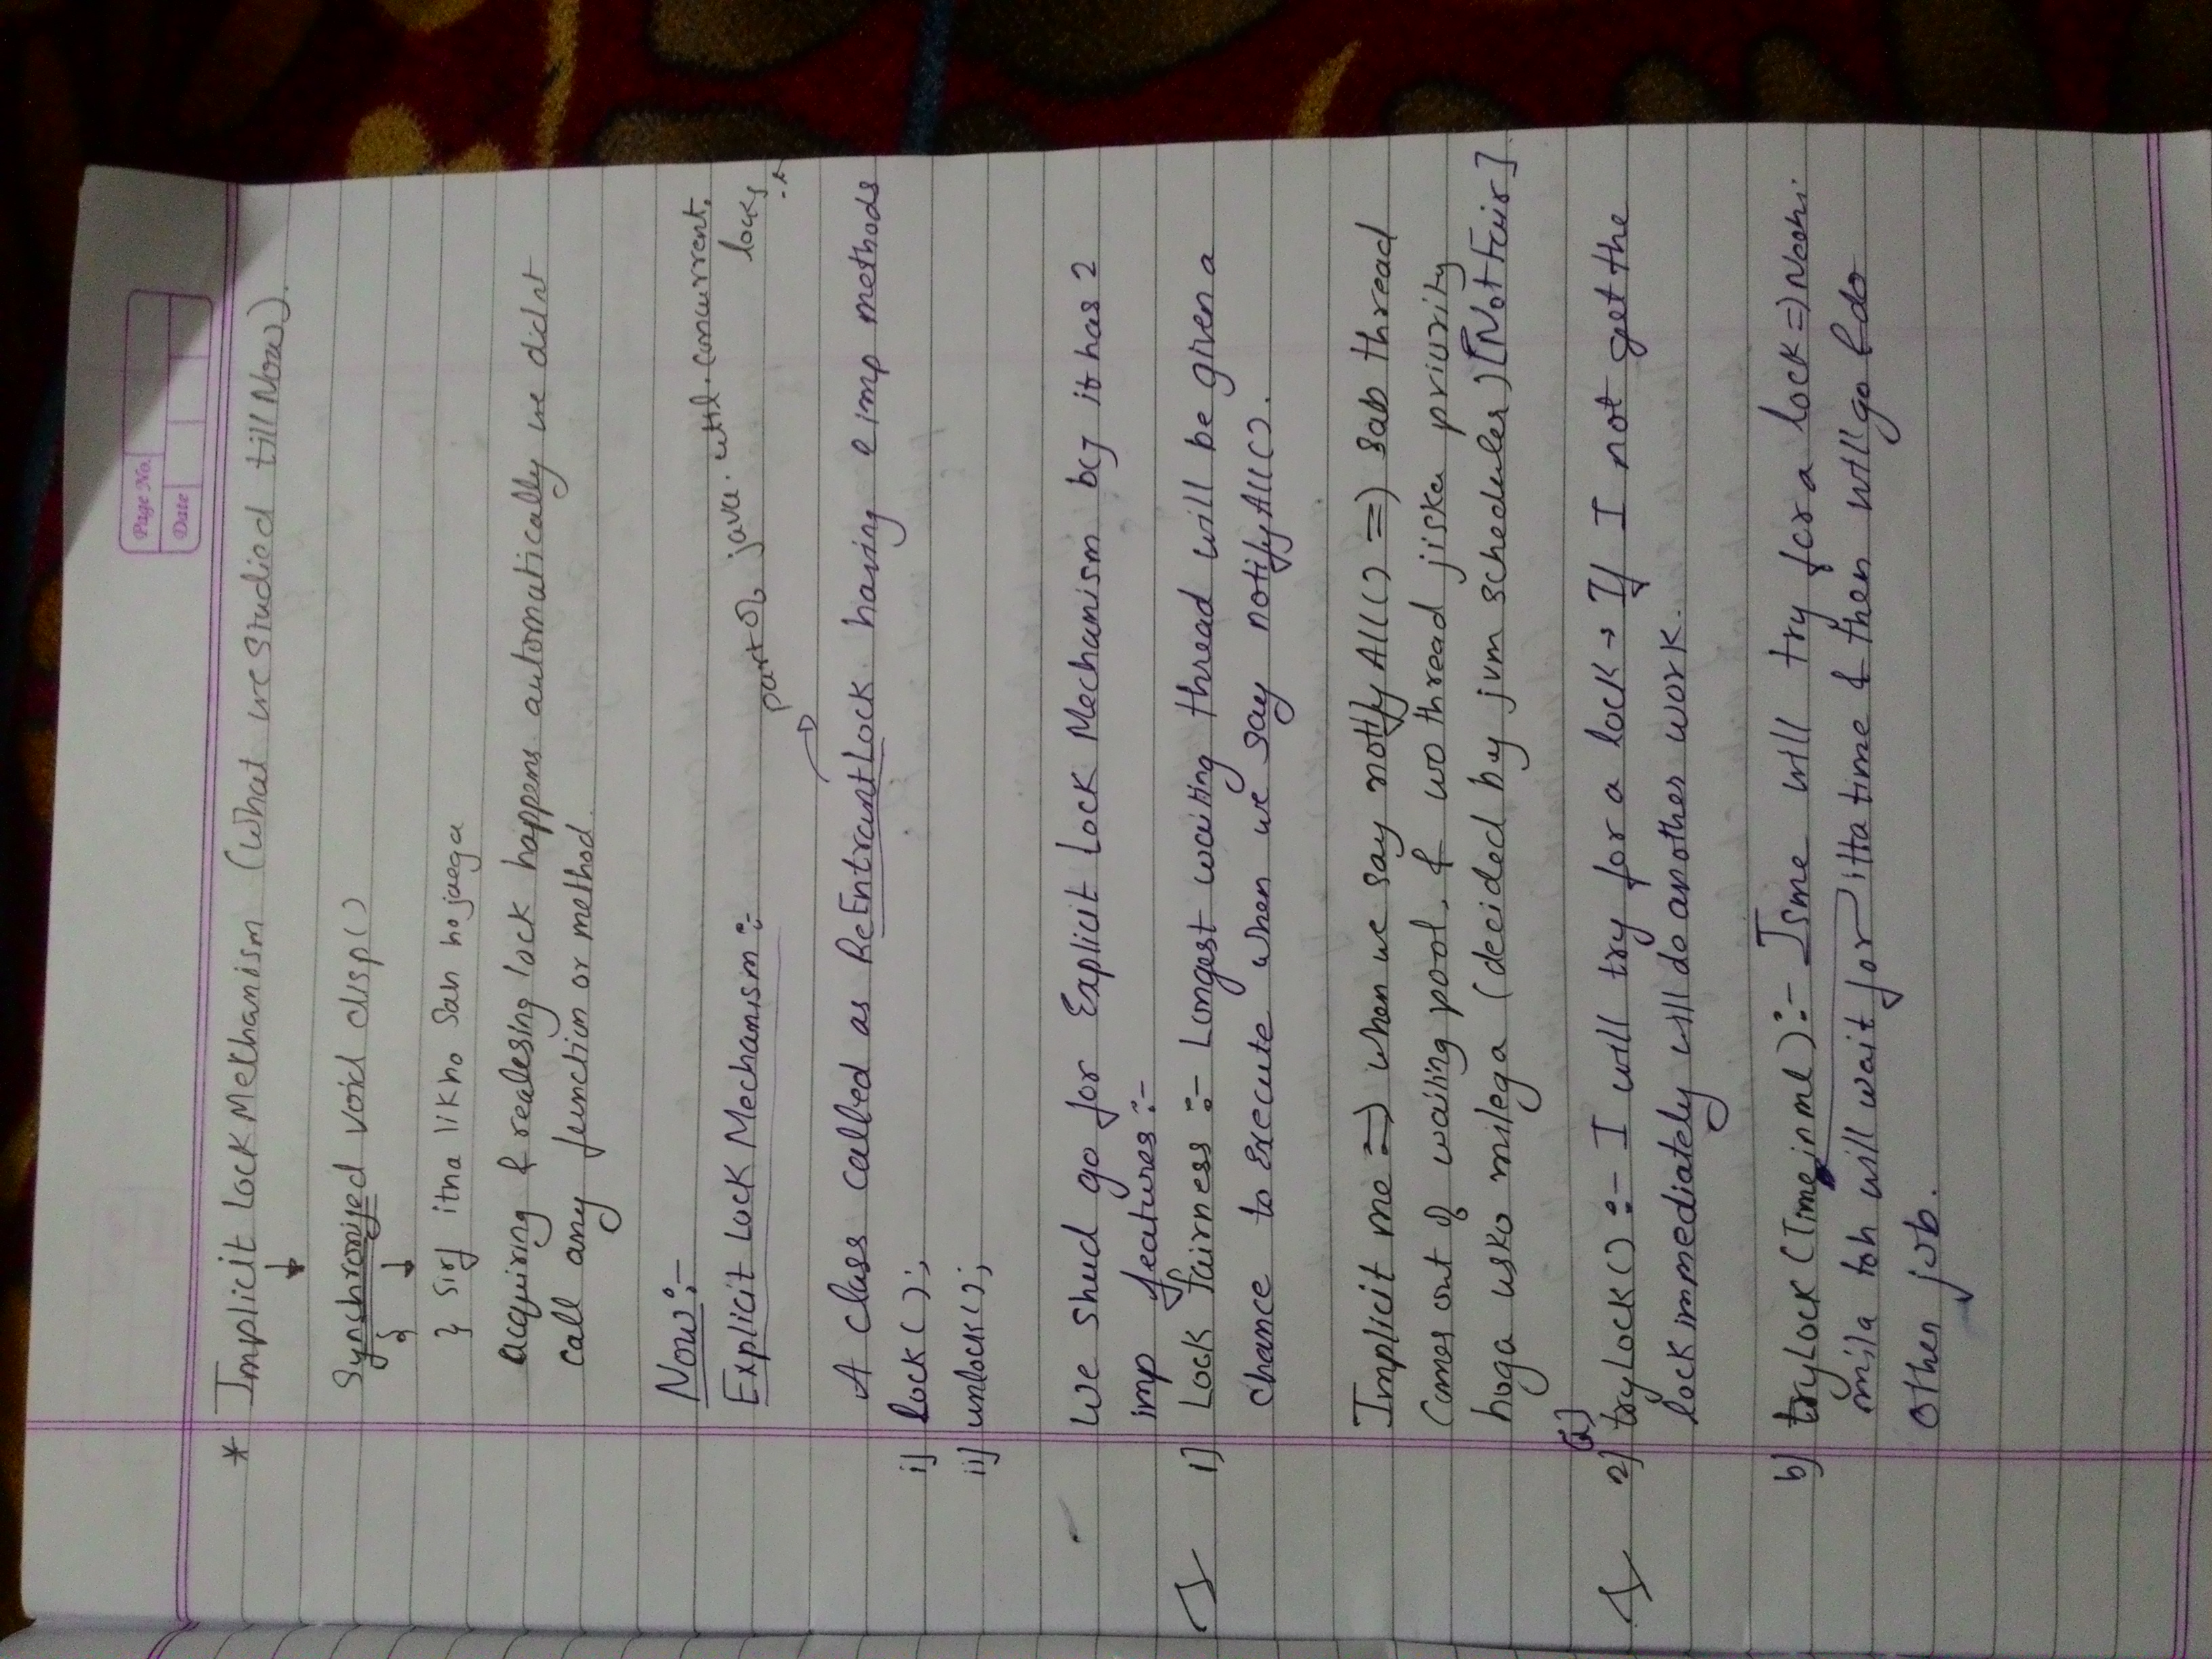 Page No.
Date
* Implicit Lock Mekhanism (What we studied till Now).
↓
Synchronized void disp()
{ ↓
} Sirf itna likho Sab hojaega
acquiring & realesing lock happens automatically we didnt
call any function or method.
Now :-
Explicit Lock Mechanism :-
part of java.util.concurrent.
locks
A class called as ReEntrantLock having 2 imp methods
i] lock();
ii] unlock();
We shud go for Explicit Lock Mechanism bcz it has 2
imp features :-
1] Lock fairness :- Longest waiting thread will be given a
chance to Execute when we say notifyAll().
Implicit me => when we say notifyAll() => sab thread
Comes out of waiting pool. & wo thread jiska priority
hoga usko milega (decided by jvm scheduler) [Not Fair].
a]
2] tryLock() :- I will try for a lock → If I not get the
lock immediately will do another work.
b] tryLock (Time in ml) :- Isme will try for a lock => Naahi
mila toh will wait for itta time & then will go & do
other job.